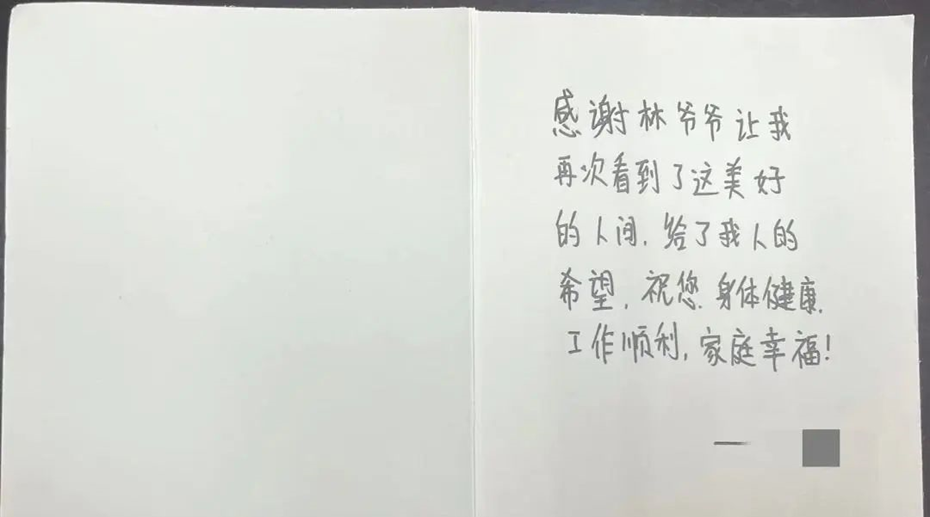 感谢林爷爷让我
再次看到了这美好
的人间,给了我人的
希望,祝您身体健康,
工作顺利,家庭幸福!
—